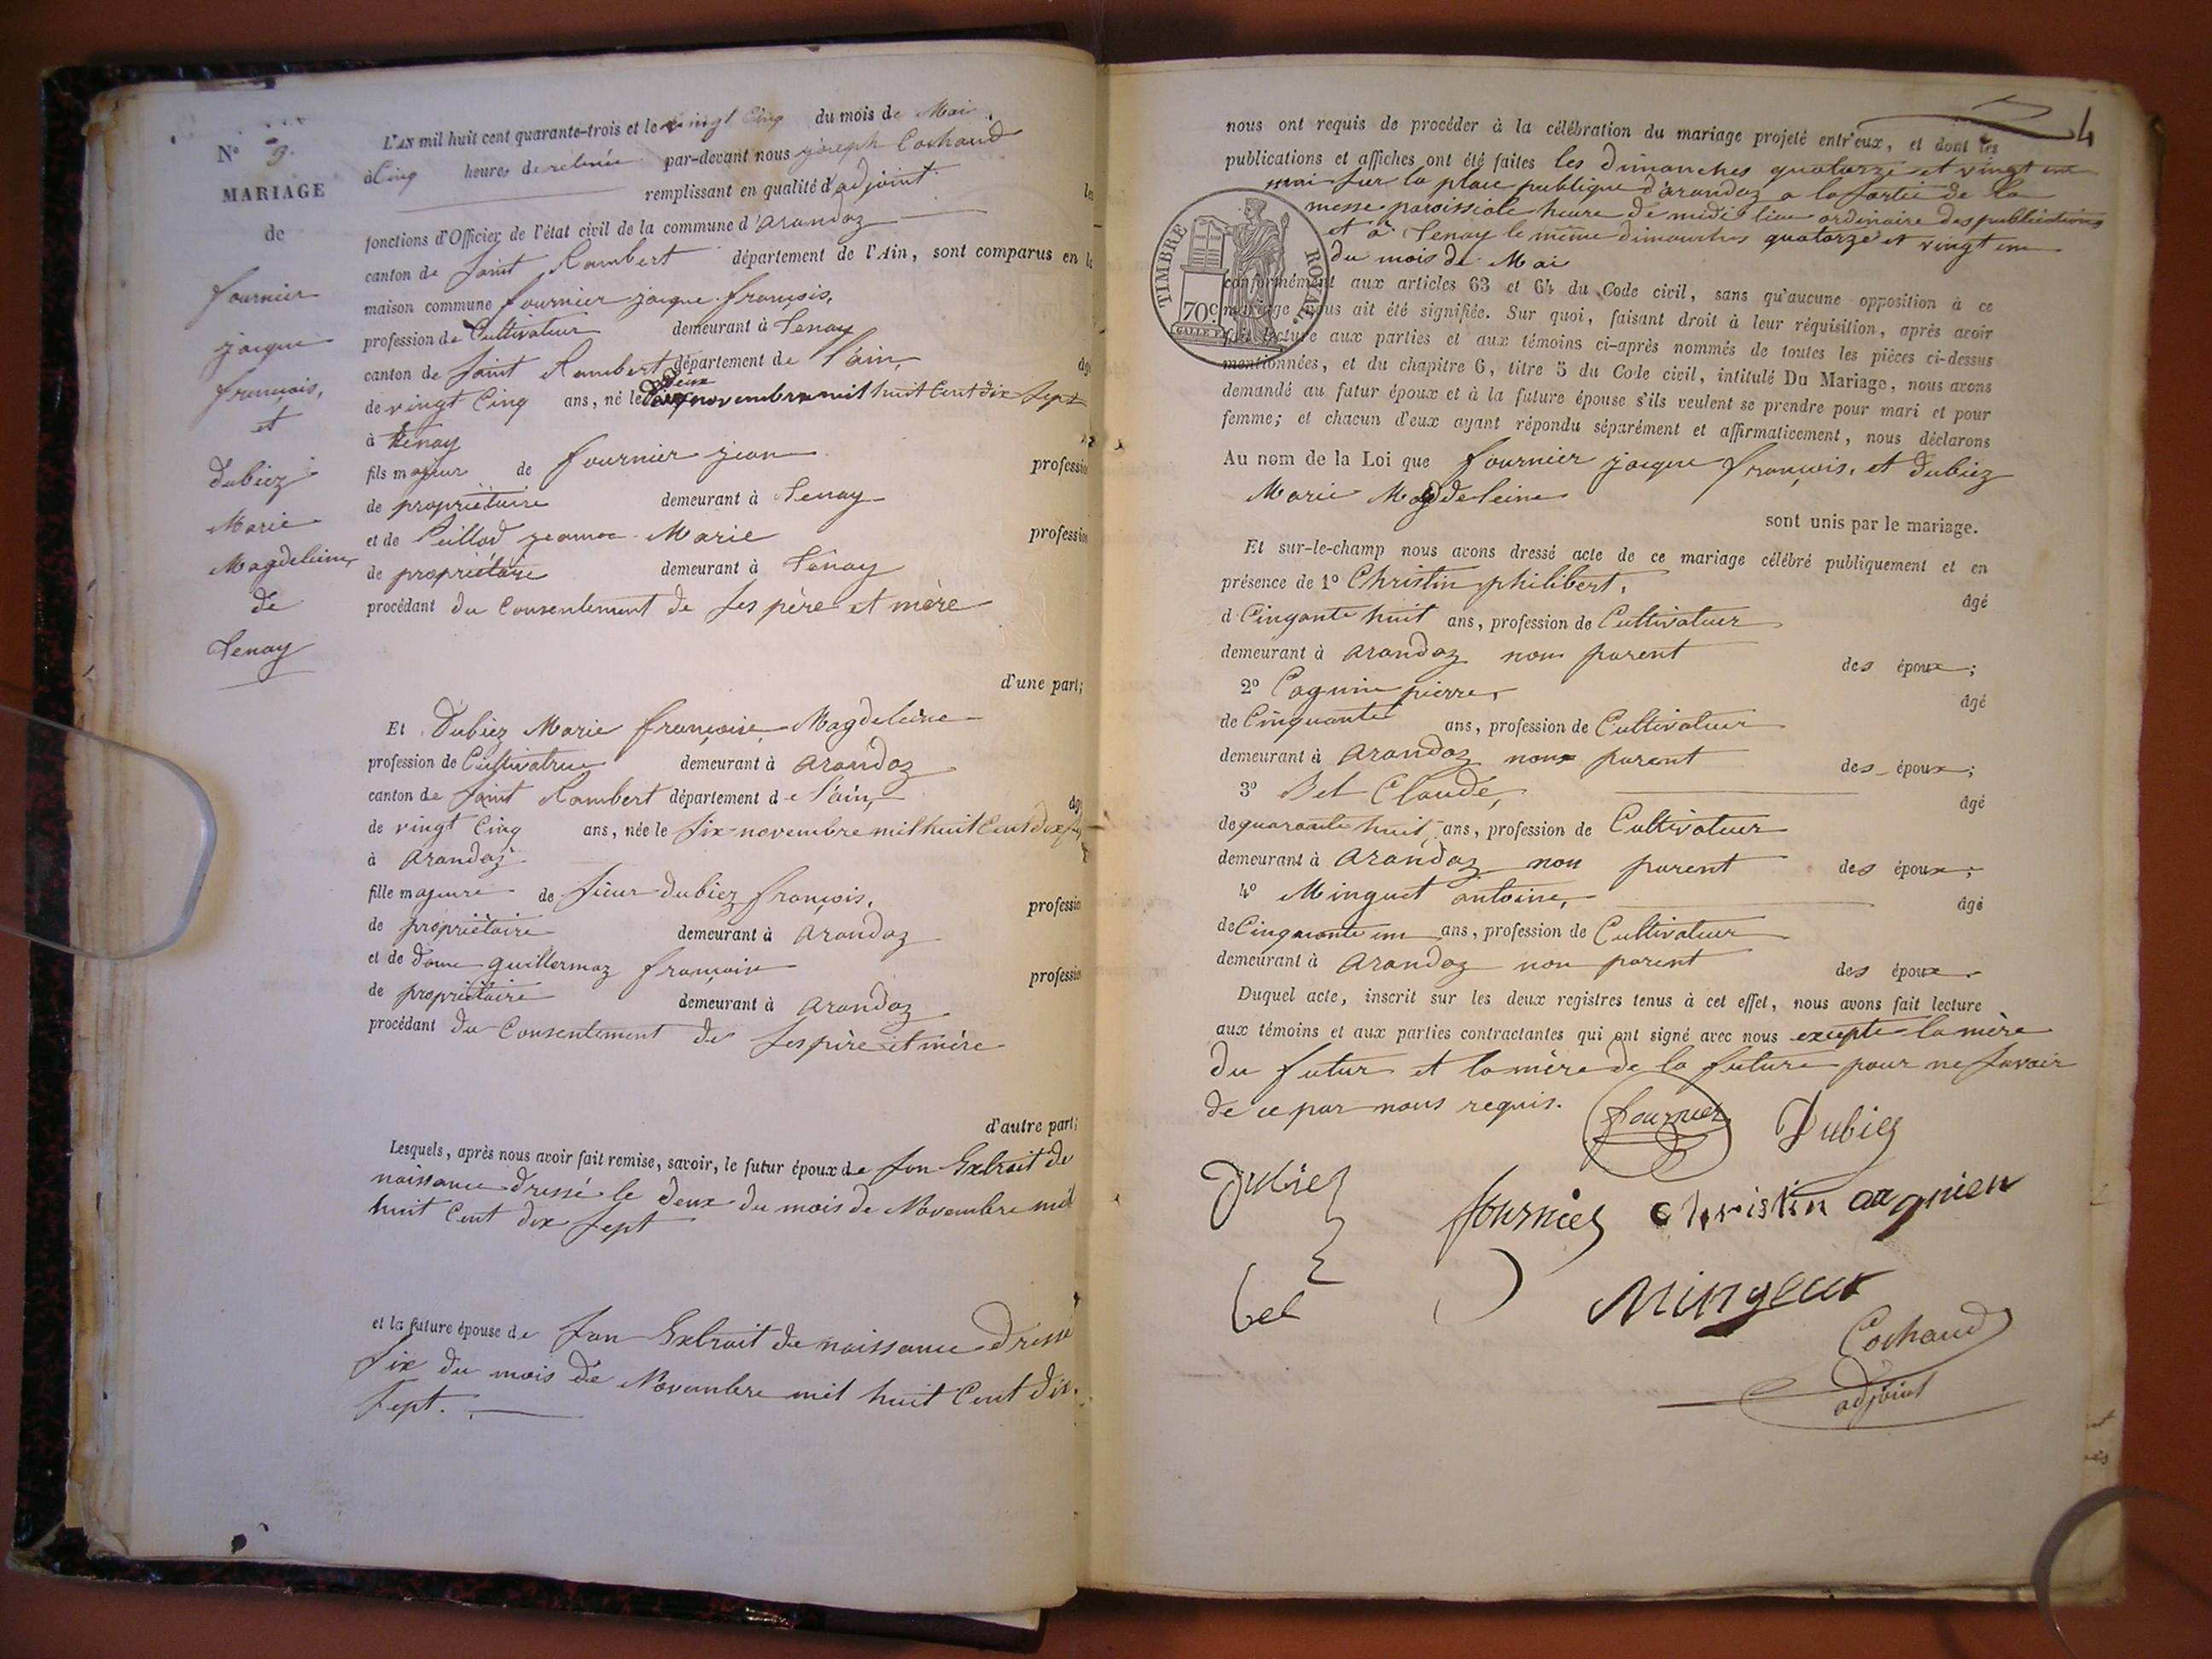 N° 3.
MARIAGE
de
fournier
jacque
françois,
et
Dubiez
Marie
Magdeleine
de
Tenay
L'AN mil huit cent quarante-trois et le vingt Cinq du mois de Mai
à Cinq heures de relevée par-devant nous joseph Cochaud
remplissant en qualité d'adjoint
fonctions d'Officier de l'état civil de la commune d'arandaz
canton de Saint Rambert département de l'Ain, sont comparus en la
maison commune fournier jacque françois,
profession de Cultivateur demeurant à Tenay
canton de Saint Rambert département de l'ain,
de vingt Cinq ans, né le deux novembre mil huit Cent dix Sept
à tenay
fils majeur de fournier jean professio
de propriétaire demeurant à Tenay
et de Pillod jeanne Marie professio
de propriétaire demeurant à Tenay
procédant du Consentement de Ses père et mère
d'une part;
Et Dubiez Marie françoise Magdeleine
profession de Cultivatrice demeurant à arandaz
canton de Saint Rambert département de l'ain,
de vingt Cinq ans, née le Six novembre mil huit Cent dix Sept
à arandaz
fille majeure de Sieur Dubiez françois, professio
de propriétaire demeurant à arandaz
et de Dame guillermaz françoise professio
de propriétaire demeurant à arandaz
procédant du Consentement de Ses père et mère
d'autre part;
Lesquels, après nous avoir fait remise, savoir, le futur époux de Son Extrait de
naissance dressé le deux du mois de Novembre mil
huit Cent dix Sept
et la future épouse de Son Extrait de naissance dressé
Six du mois de Novembre mil huit Cent dix
Sept.
4
nous ont requis de procéder à la célébration du mariage projeté entr'eux, et dont les
publications et affiches ont été faites les dimanches quatorze et vingt un
mai Sur la place publique d'arandaz a la Sortie de la
messe paroissiale heure de midi lieu ordinaire des publications
et à Tenay le même dimanches quatorze et vingt un
du mois de Mai
TIMBRE ROYAL.
70c
conformément aux articles 63 et 64 du Code civil, sans qu'aucune opposition à ce
mariage nous ait été signifiée. Sur quoi, faisant droit à leur réquisition, après avoir
fait lecture aux parties et aux témoins ci-après nommés de toutes les pièces ci-dessus
mentionnées, et du chapitre 6, titre 5 du Code civil, intitulé Du Mariage, nous avons
demandé au futur époux et à la future épouse s'ils veulent se prendre pour mari et pour
femme; et chacun d'eux ayant répondu séparément et affirmativement, nous déclarons
Au nom de la Loi que fournier jacque françois, et Dubiez
Marie Magdeleine
sont unis par le mariage.
Et sur-le-champ nous avons dressé acte de ce mariage célébré publiquement et en
présence de 1° Christin philibert, âgé
d Cinqante huit ans, profession de Cultivateur
demeurant à arandaz non parent des époux;
2° Cagnin pierre, âgé
de Cinquante ans, profession de Cultivateur
demeurant à arandaz non parent des époux;
3° Bel Claude, âgé
de quarante huit ans, profession de Cultivateur
demeurant à arandaz non parent des époux;
4° Minguet antoine, âgé
de Cinquante un ans, profession de Cultivateur
demeurant à arandaz non parent des époux.
Duquel acte, inscrit sur les deux registres tenus à cet effet, nous avons fait lecture
aux témoins et aux parties contractantes qui ont signé avec nous excepté la mère
du futur et la mère de la future pour ne Savoir
de ce par nous requis. fournier Dubiez
Dubiez
fournier Christin
bel
Cochaud
adjoint